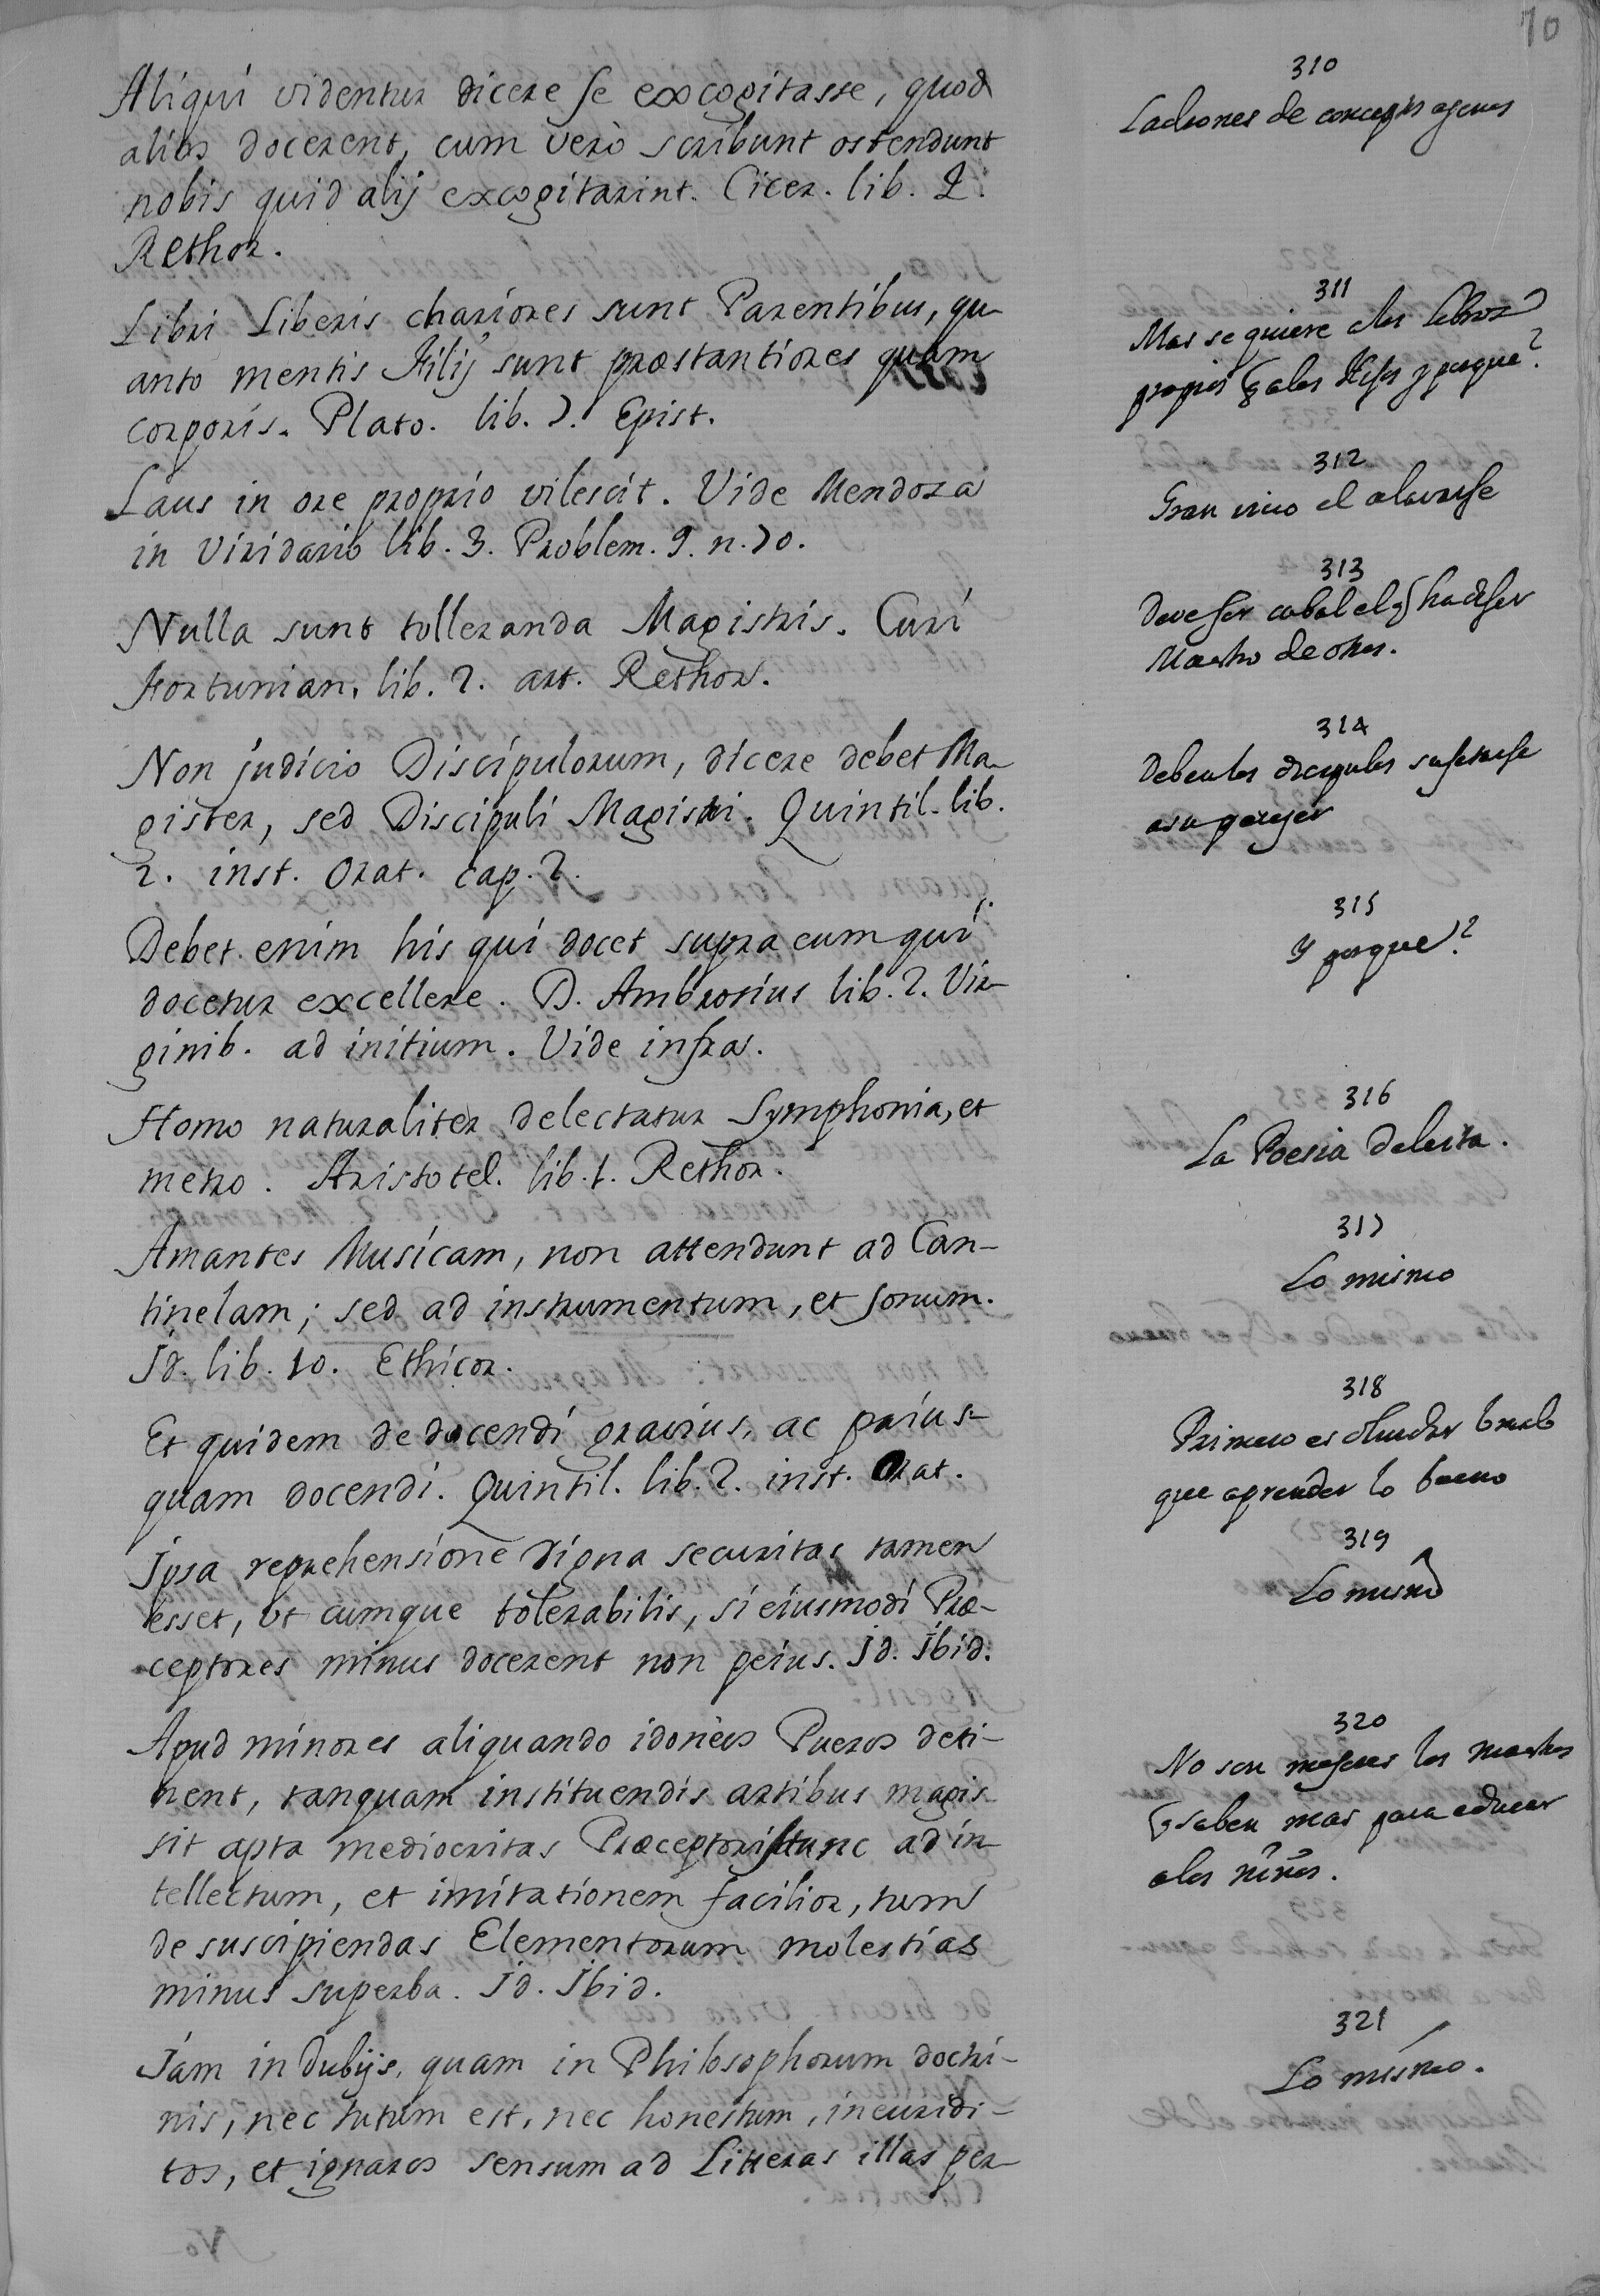 70
Aliqui videntur dicere se excogitasse, quod
alios docerent, cum verò scribunt ostendunt
nobis quid alij excogitarint. Cicer. lib. 2.
Rethor.
310
Ladrones de conceptos agenos
Libri Liberis chariores sunt Parentibus, qu-
anto mentis Filij sunt præstantiores quam
corporis. Plato. lib. 7. Epist.
311
Mas se quiere a los Libros
propios q a los Hijos y porque?
Laus in ore proprio vilescit. Vide Mendoza
in Viridario lib. 3. Problem. 9. n. 70.
312
Gran vicio el alavarse
Nulla sunt tolleranda Magistris. Curi
Fortunian. lib. 2. art. Rethor.
313
Deve ser cabal el q ha de ser
Maestro de otros.
Non judicio Discipulorum, dicere debet Ma-
gister, sed Discipuli Magistri. Quintil. lib.
2. inst. Orat. cap. 2.
314
Deben los discipulos sugetarse
a su parecer
Debet enim his qui docet supra eum qui
docetur excellere. D. Ambrosius lib. 2. Vir-
ginib. ad initium. Vide infra.
315
Y porque?
Homo naturaliter delectatur Symphonia, et
metro. Aristotel. lib. 1. Rethor.
316
La Poesia deleita.
Amantes Musicam, non attendunt ad Can-
tinelam; sed ad instrumentum, et sonum.
Jd. lib. 10. Ethicor.
317
Lo mismo
Et quidem de docendi gravius, ac prius-
quam docendi. Quintil. lib. 2. inst. Orat.
318
Primero es olvidar lo malo
que aprender lo bueno
Jpsa reprehensione digna securitas tamen
esset, ut cumque tolerabilis, si eiusmodi Præ-
ceptores minus docerent non peius. Jd. Jbid.
319
Lo mismo
Apud minores aliquando idoneos Pueros deti-
nent, tanquam instituendis artibus magis
sit apta mediocritas Præceptoris tunc ad in-
tellectum, et imitationem facilior, tum
de suscipiendas Elementorum molestias
minus superba. Jd. Jbid.
320
No son mejores los maestros
q saben mas para educar
a los niños.
Jam in Dubijs, quam in Philosophorum doctri-
nis, nec tutum est, nec honestum, ineuridi-
tos, et ignaros sensum ad Litteras illas per-
321
Lo mismo.